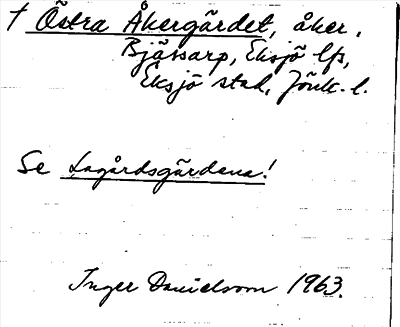 † Östra Åkergärdet, åker,
Bjässarp, Eksjö lfs,
Eksjö stad, Jönk. l.
Se Lagårdsgärdena!
Inger Danielsson 1963.